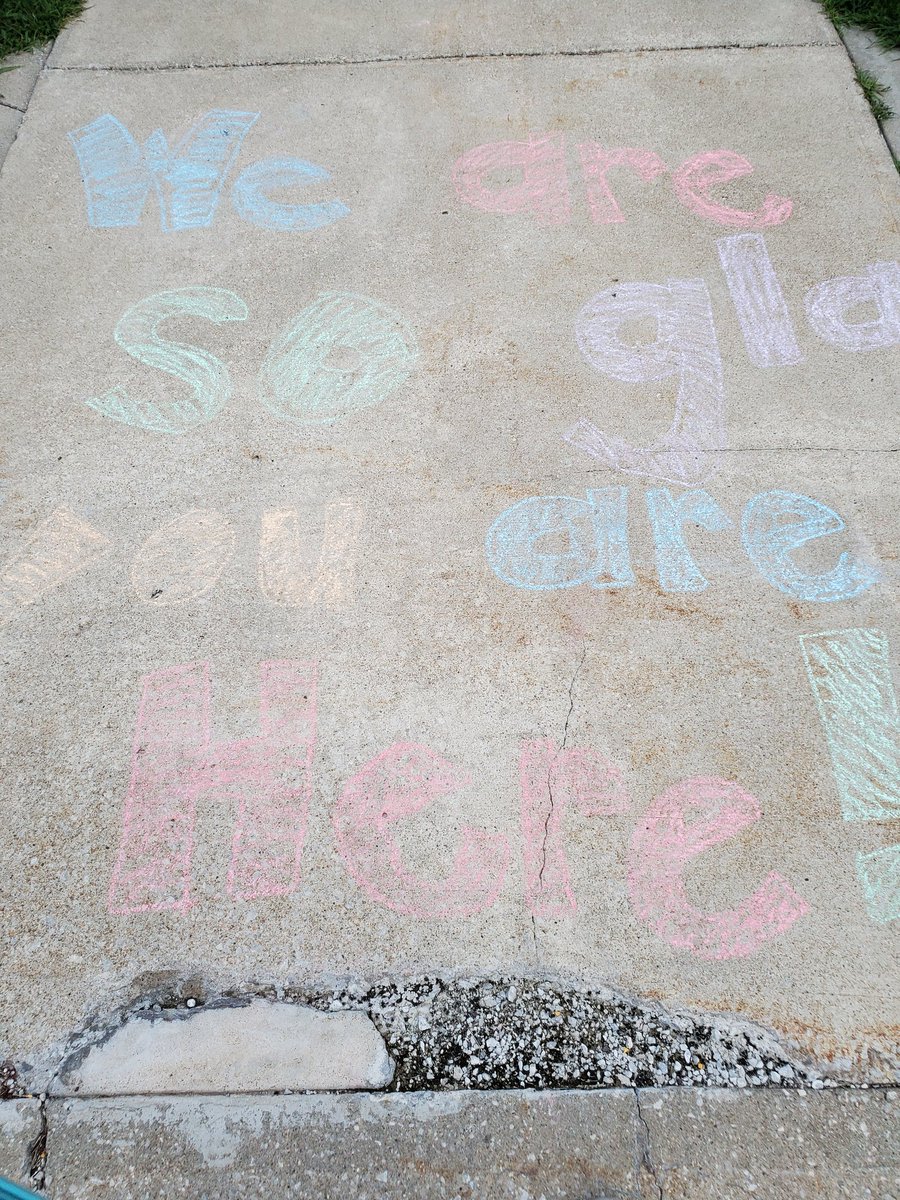 We are
so gla
you are
Here!